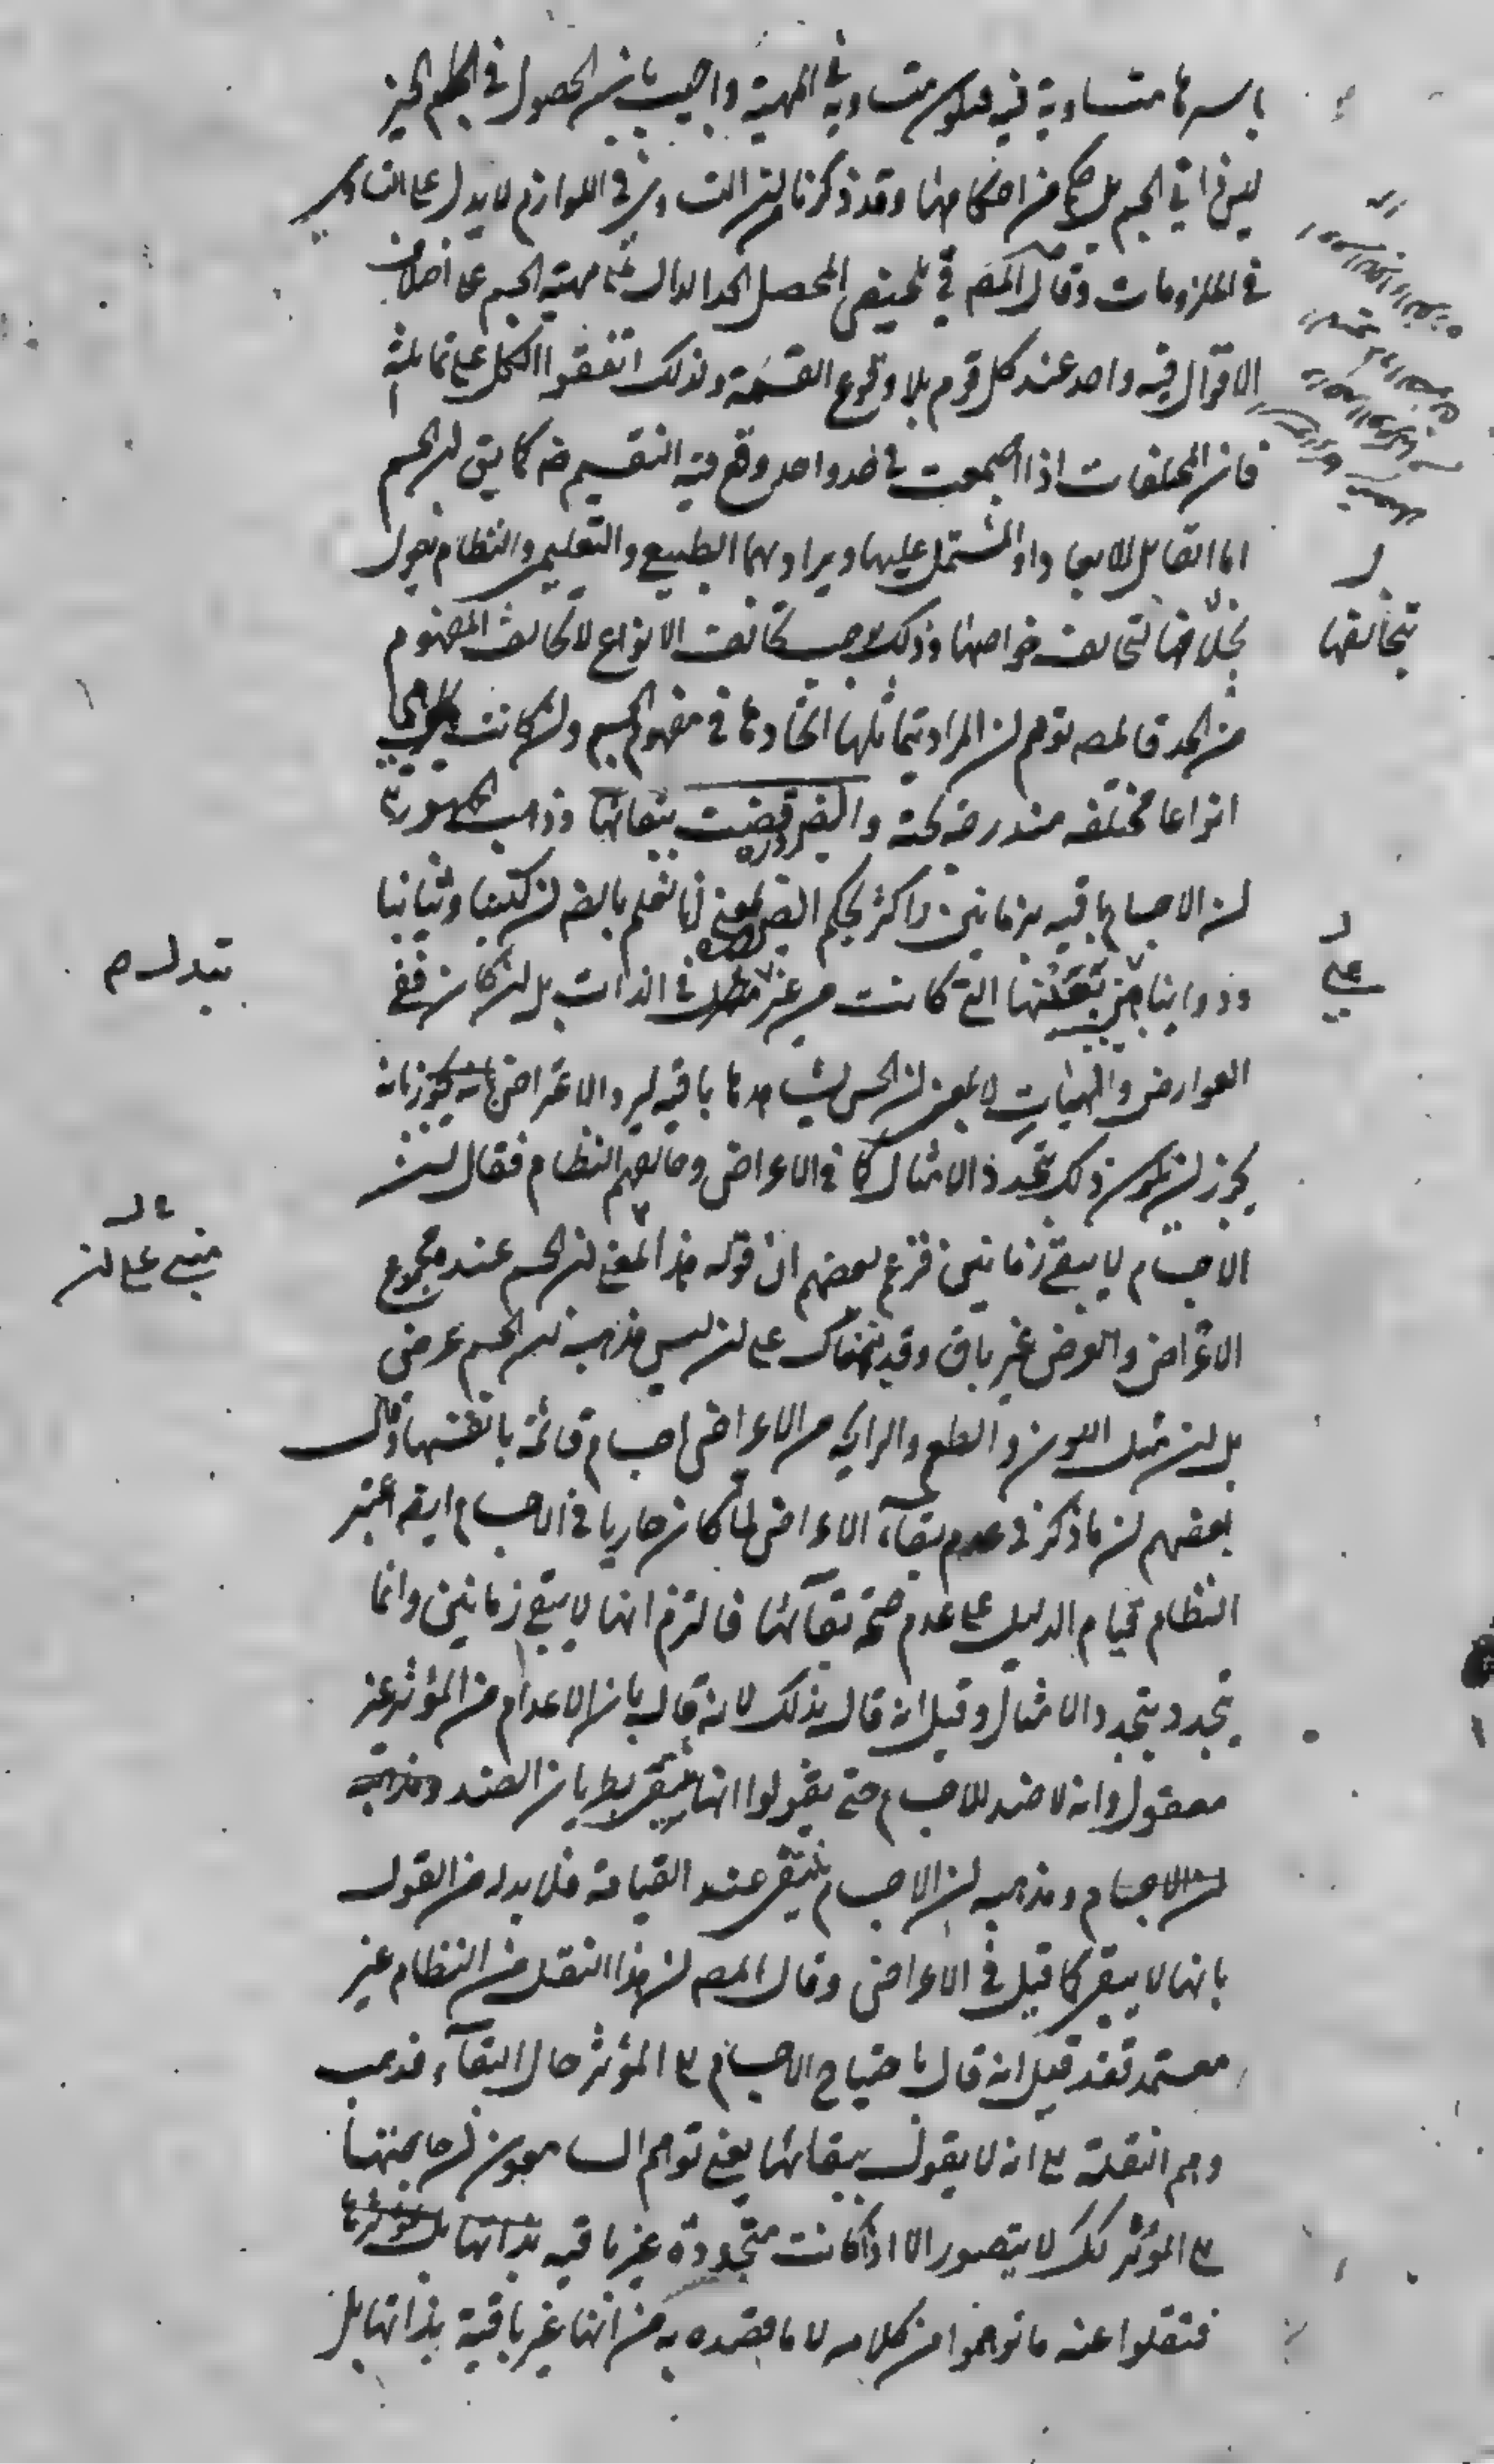 باسرها متساوية فيه فيكون متساوية في المهية واجيب بان الحصول في الحيز
ليس ذاتي الجسم بل حكم من احكامها وقد ذكرنا ان التساوي في اللوازم لا يدل على التساوي
في الملزومات وقال المصـ في تلخيص المحصل الحد الدال على مهية الجسم على اختلاف
الاقوال فيه واحد عند كل قوم بلا وقوع القسمة ولذلك اتفقوا الكل على تماثله
فان المختلفات اذا اجتمعت في حد واحد وقع فيه التقسيم ضه كما يق ان الجسم
اما القابل للابعاد او المشتمل عليها ويراد بهما الطبيعي والتعليمي والنظام يقول
بتخالفها لتخالف خواصها وذلك يوجب تخالف الانواع لا تخالف المفهوم
من الحد فالمصه توهم ان المراد بتماثلها اتحادها في مفهوم الجسم وان كانت
انواعا مختلفه مندرجه تحته والضرورة قضت ببقائها وذهب الجمهور
ان الاجسام باقيه زمانين واكثر بحكم الضرورة بمعنى انا نعلم بالضه ان كتبنا وثيابنا
ودوابنا هي بعينها التي كانت من غير تبدل في الذات بل ان كان ففي
العوارض والهيات لا بمعنى ان الحس يشاهدها باقيه ليرد الاعتراض بانه
يجوز ان يكون ذلك بتجدد الامثال كما في الاعراض وخالفهم النظام فقال ان
الاجسام لا يبقى زمانين فزعم بعضهم ان قوله هذا مبني على ان الجسم عنده مجموع
الاعراض والعرض غير باق وقد نبهناك على ان ليس مذهبه ان الجسم عرض
بل ان مثل اللون والطعم والرايحه من الاعراض اجسام قائمة بانفسها وقال
بعضهم ان ما ذكر في عدم بقآء الاعراض لما كان جاريا في الاجسام ايضه اعتبر
النظام قيام الدليل على عدم صحة بقآئها فالتزم انها لا يبقى زمانين وانما
يتجدد بتجدد الامثال وقيل انه قال بذلك لانه قال بان الاعدام من المؤثر غير
معقول وانه لا ضد للاجسام حتى يقولوا انها ينتفي بطريان الضد ومذهبه
ان الاجسام ومذهبه ان الاجسام ينتفي عند القيامة فلا بد له من القول
بانها لا يبقى كما قيل في الاعراض وقال المصه ان هذا النقل من النظام غير
معتمد فقد قيل انه قال باحتياج الاجسام الى المؤثر حال البقآء فذهب
وهم النقلة الى انه لا يقول ببقائها يعني توهم السامعون ان حاجتها
الى المؤثر كك لا يتصور الا اذا كانت متجددة غير باقيه بذاتها بل
فنقلوا عنه ما توهموا من كلامه لا ما قصده به من انها غير باقية بذاتها بل
بتخالفها
على
تبدل م
مبني على ان